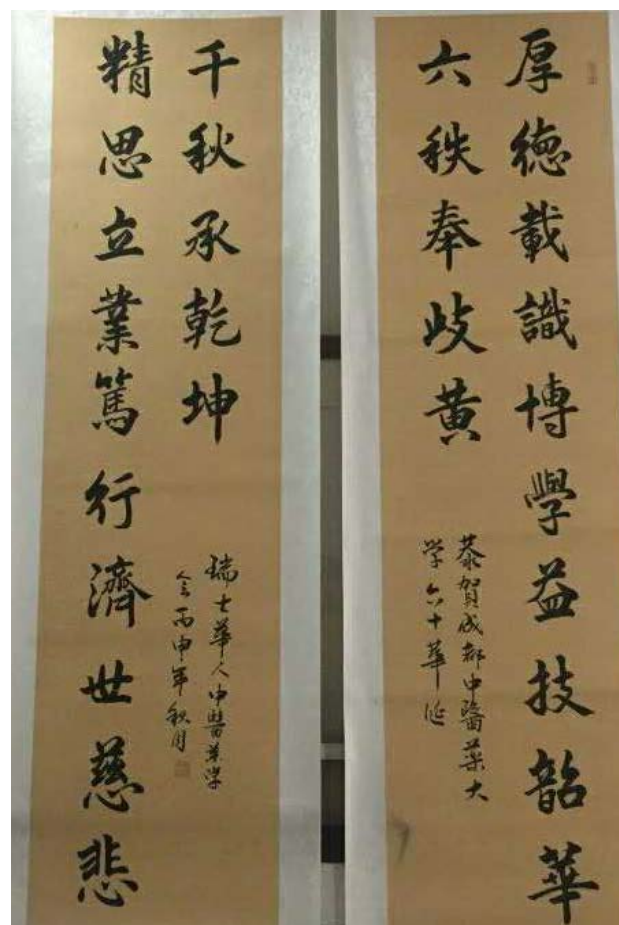 厚德載識博學益技韶華
六秩奉歧黄
恭賀成都中醫藥大
学六十華诞
精思立業篤行濟世慈悲
千秋承乾坤
瑞士華人中醫薬学
会丙申年秋月